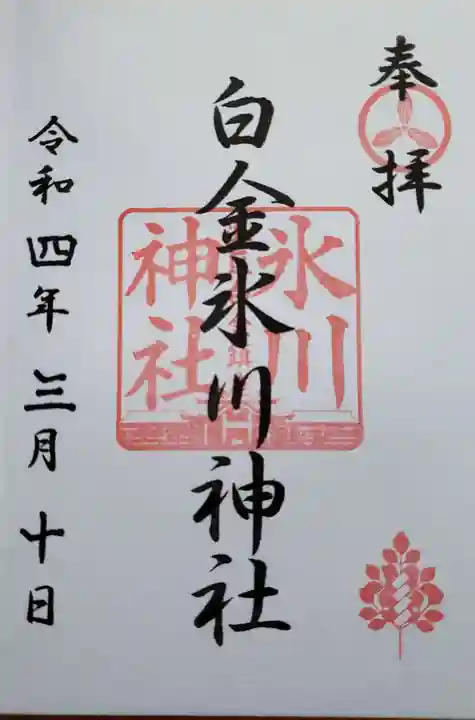 奉拝
白金氷川神社
氷川
神社
令和四年三月十日